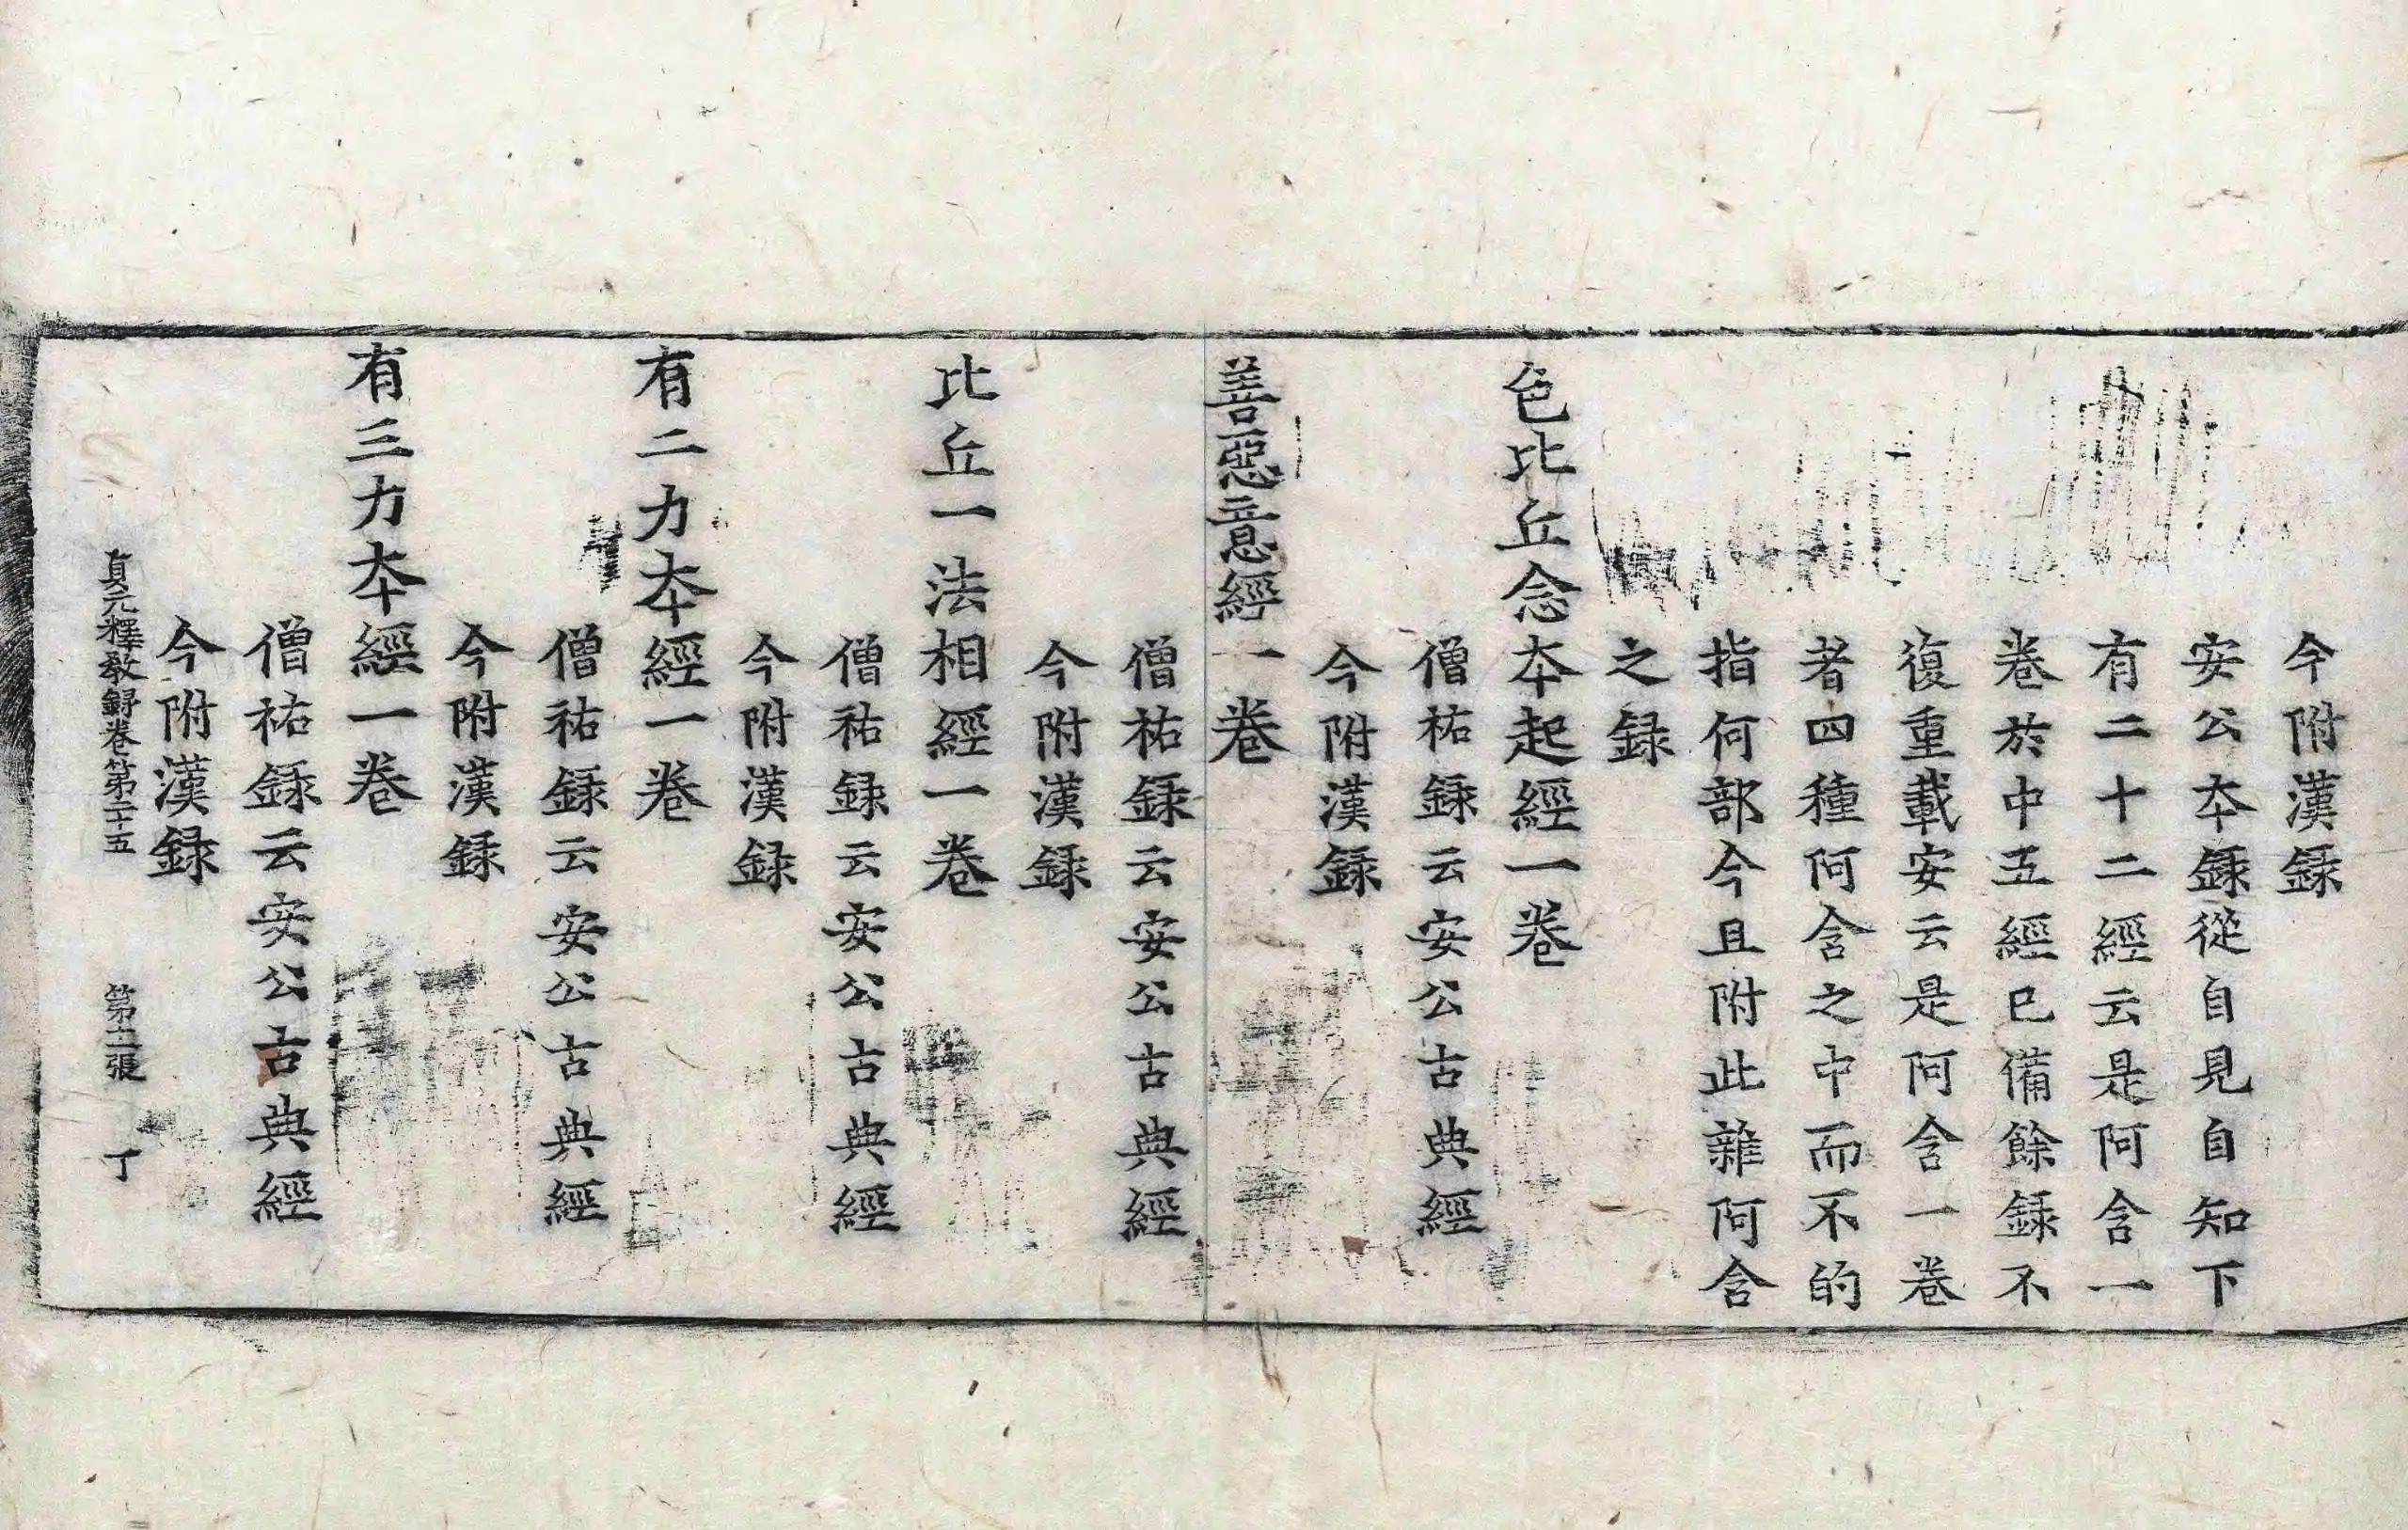 今附漢録
安公本録從自見自知下
有二十二經云是阿含一
卷於中五經已備餘録不
復重載安云是阿含一卷
者四種阿含之中而不的
指何部今且附此雜阿含
之録
色比丘念本起經一卷
僧祐録云安公古典經
今附漢録
善惡意經一卷
僧祐録云安公古典經
今附漢録
比丘一法相經一卷
僧祐録云安公古典經
今附漢録
有二力本經一卷
僧祐録云安公古典經
今附漢録
有三力本經一卷
僧祐録云安公古典經
今附漢録
貞元釋教録卷第二十五 第十二張 丁